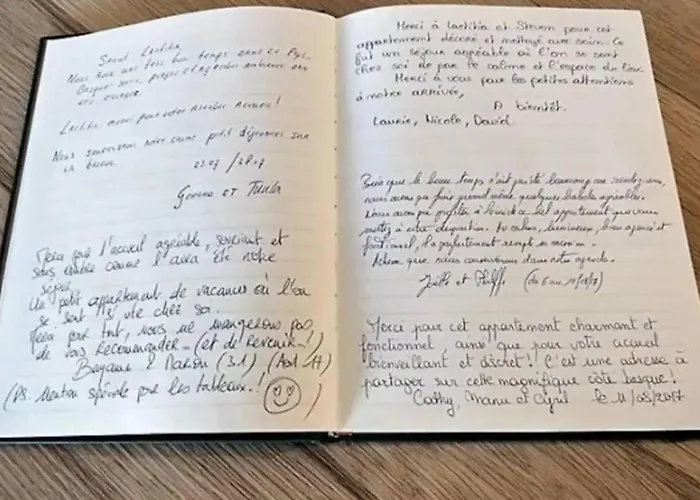 Salut Laetitia,
Nous avons eu un très bon temps dans ce Pays
Basque
Laetitia, merci pour votre accueil !
Nous souviendrons notre petit déjeuner sur
la terrasse.
23.07 / 28.07
ET
Merci pour l'accueil agréable, souriant et
sans oublier comme l'aura été notre
séjour.
Un petit appartement de vacances où l'on
se sent vite chez soi.
Merci pour tout, nous ne manquerons pas
de vous recommander - (et de revenir - !)
& (31) (Août 17)
(PS. Mention spéciale pour les tableaux - !)
Merci à Laetitia et Steven pour cet
appartement décoré et nettoyé avec soin. Ce
fut un séjour agréable où l'on se sent
chez soi de par le calme et l'espace du lieu.
Merci à vous pour les petites attentions
à notre arrivée,
A bientôt.
Laurie, Nicole, David
Bien que le beau temps n'ait pas été beaucoup au rendez-vous,
nous avons pu faire quand même quelques balades agréables.
Nous avons pu profiter à loisir de ce bel appartement que vous
mettez à notre disposition. Au calme, lumineux, bien agencé et
fonctionnel, il a parfaitement rempli sa mission.
Adresse que nous conserverons dans notre agenda.
Joëlle et Philippe (du 6 au 11/08/17)
Merci pour cet appartement charmant et
fonctionnel ainsi que pour votre accueil
bienveillant et discret ! C'est une adresse à
partager sur cette magnifique côte basque !
Cathy, Manu et Cyril le 11/08/2017